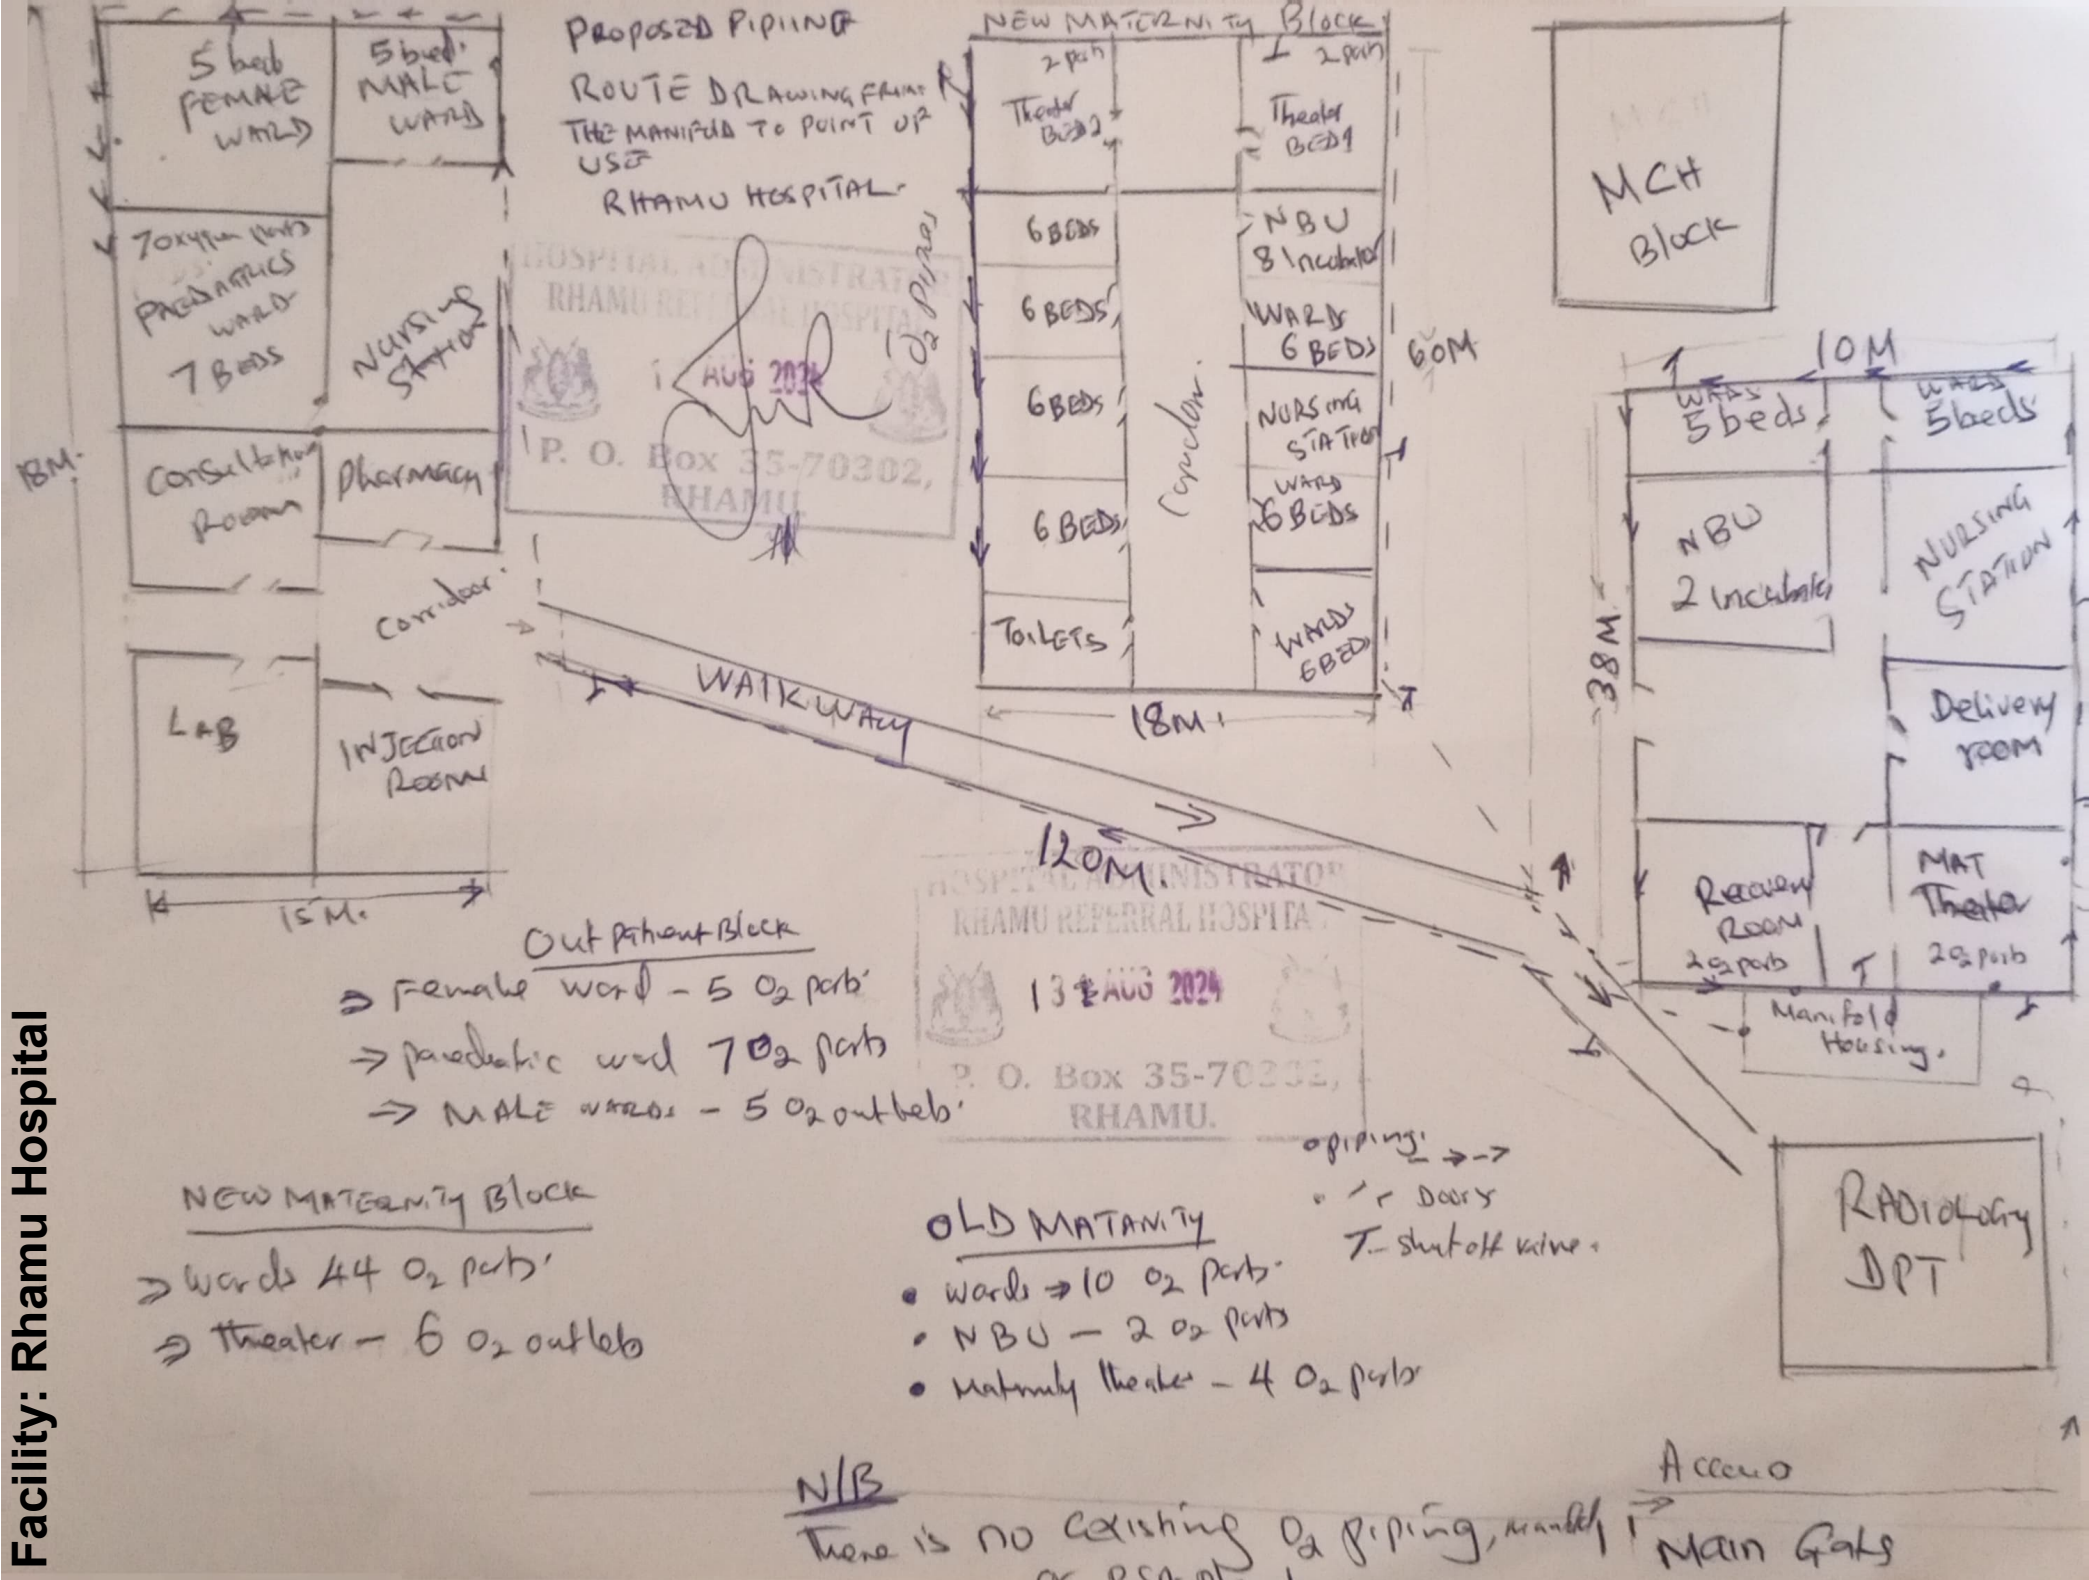 Facility: Rhamu Hospital
PROPOSED PIPIING
ROUTE DRAWING FROM
THE MANIFOLD TO POINT OF
USE
RHAMU HOSPITAL.
5 beds
FEMALE
WARD
5 bed
MALE
WARD
7 oxygen ports
PAEDATRICS
WARD
7 BEDS
Nursing
Station
18M.
Consultation
Room
Pharmacy
Corridoor.
LAB
INJECTION
ROOM
15M.
HOSPITAL ADMINISTRATOR
RHAMU REFERRAL HOSPITAL
AUG 2024
P. O. Box 35-70302,
RHAMU.
NEW MATERNITY Block
2 port
Theater
BED2
2 port
Theater
BED1
6 BEDS
6 BEDS
6 BEDS
6 BEDS
TOILETS
Corridor.
NBU
8 Incubator
WARDS
6 BEDS
NURSING
STATION
WARD
6 BEDS
WARDS
6 BEDS
60M
18M.
MCH
Block
10M
WARDS
5 beds
WARDS
5 beds
NBU
2 Incubator
NURSING
STATION
38M.
Delivery
room
Recovery
Room
2 O2 ports
MAT
Theater
2 O2 ports
T
Manifold
Housing.
WALKWAY
120M.
HOSPITAL ADMINISTRATOR
RHAMU REFERRAL HOSPITA
13 AUG 2024
P. O. Box 35-70302,
RHAMU.
RADIOLOGY
DPT
Out patient Block
⇒ Female ward - 5 O2 ports
→ paediatric ward 7 O2 ports
→ MALE WARDS - 5 O2 outlets.
NEW MATERNITY Block
⇒ wards 44 O2 ports.
⇒ theater - 6 O2 outlets
OLD MATANITY
• wards → 10 O2 ports.
• NBU - 2 O2 ports
• Maternity theater - 4 O2 ports
piping. - → - →
Doors
T - shut off valve.
N/B
There is no existing O2 piping,
Main Gate